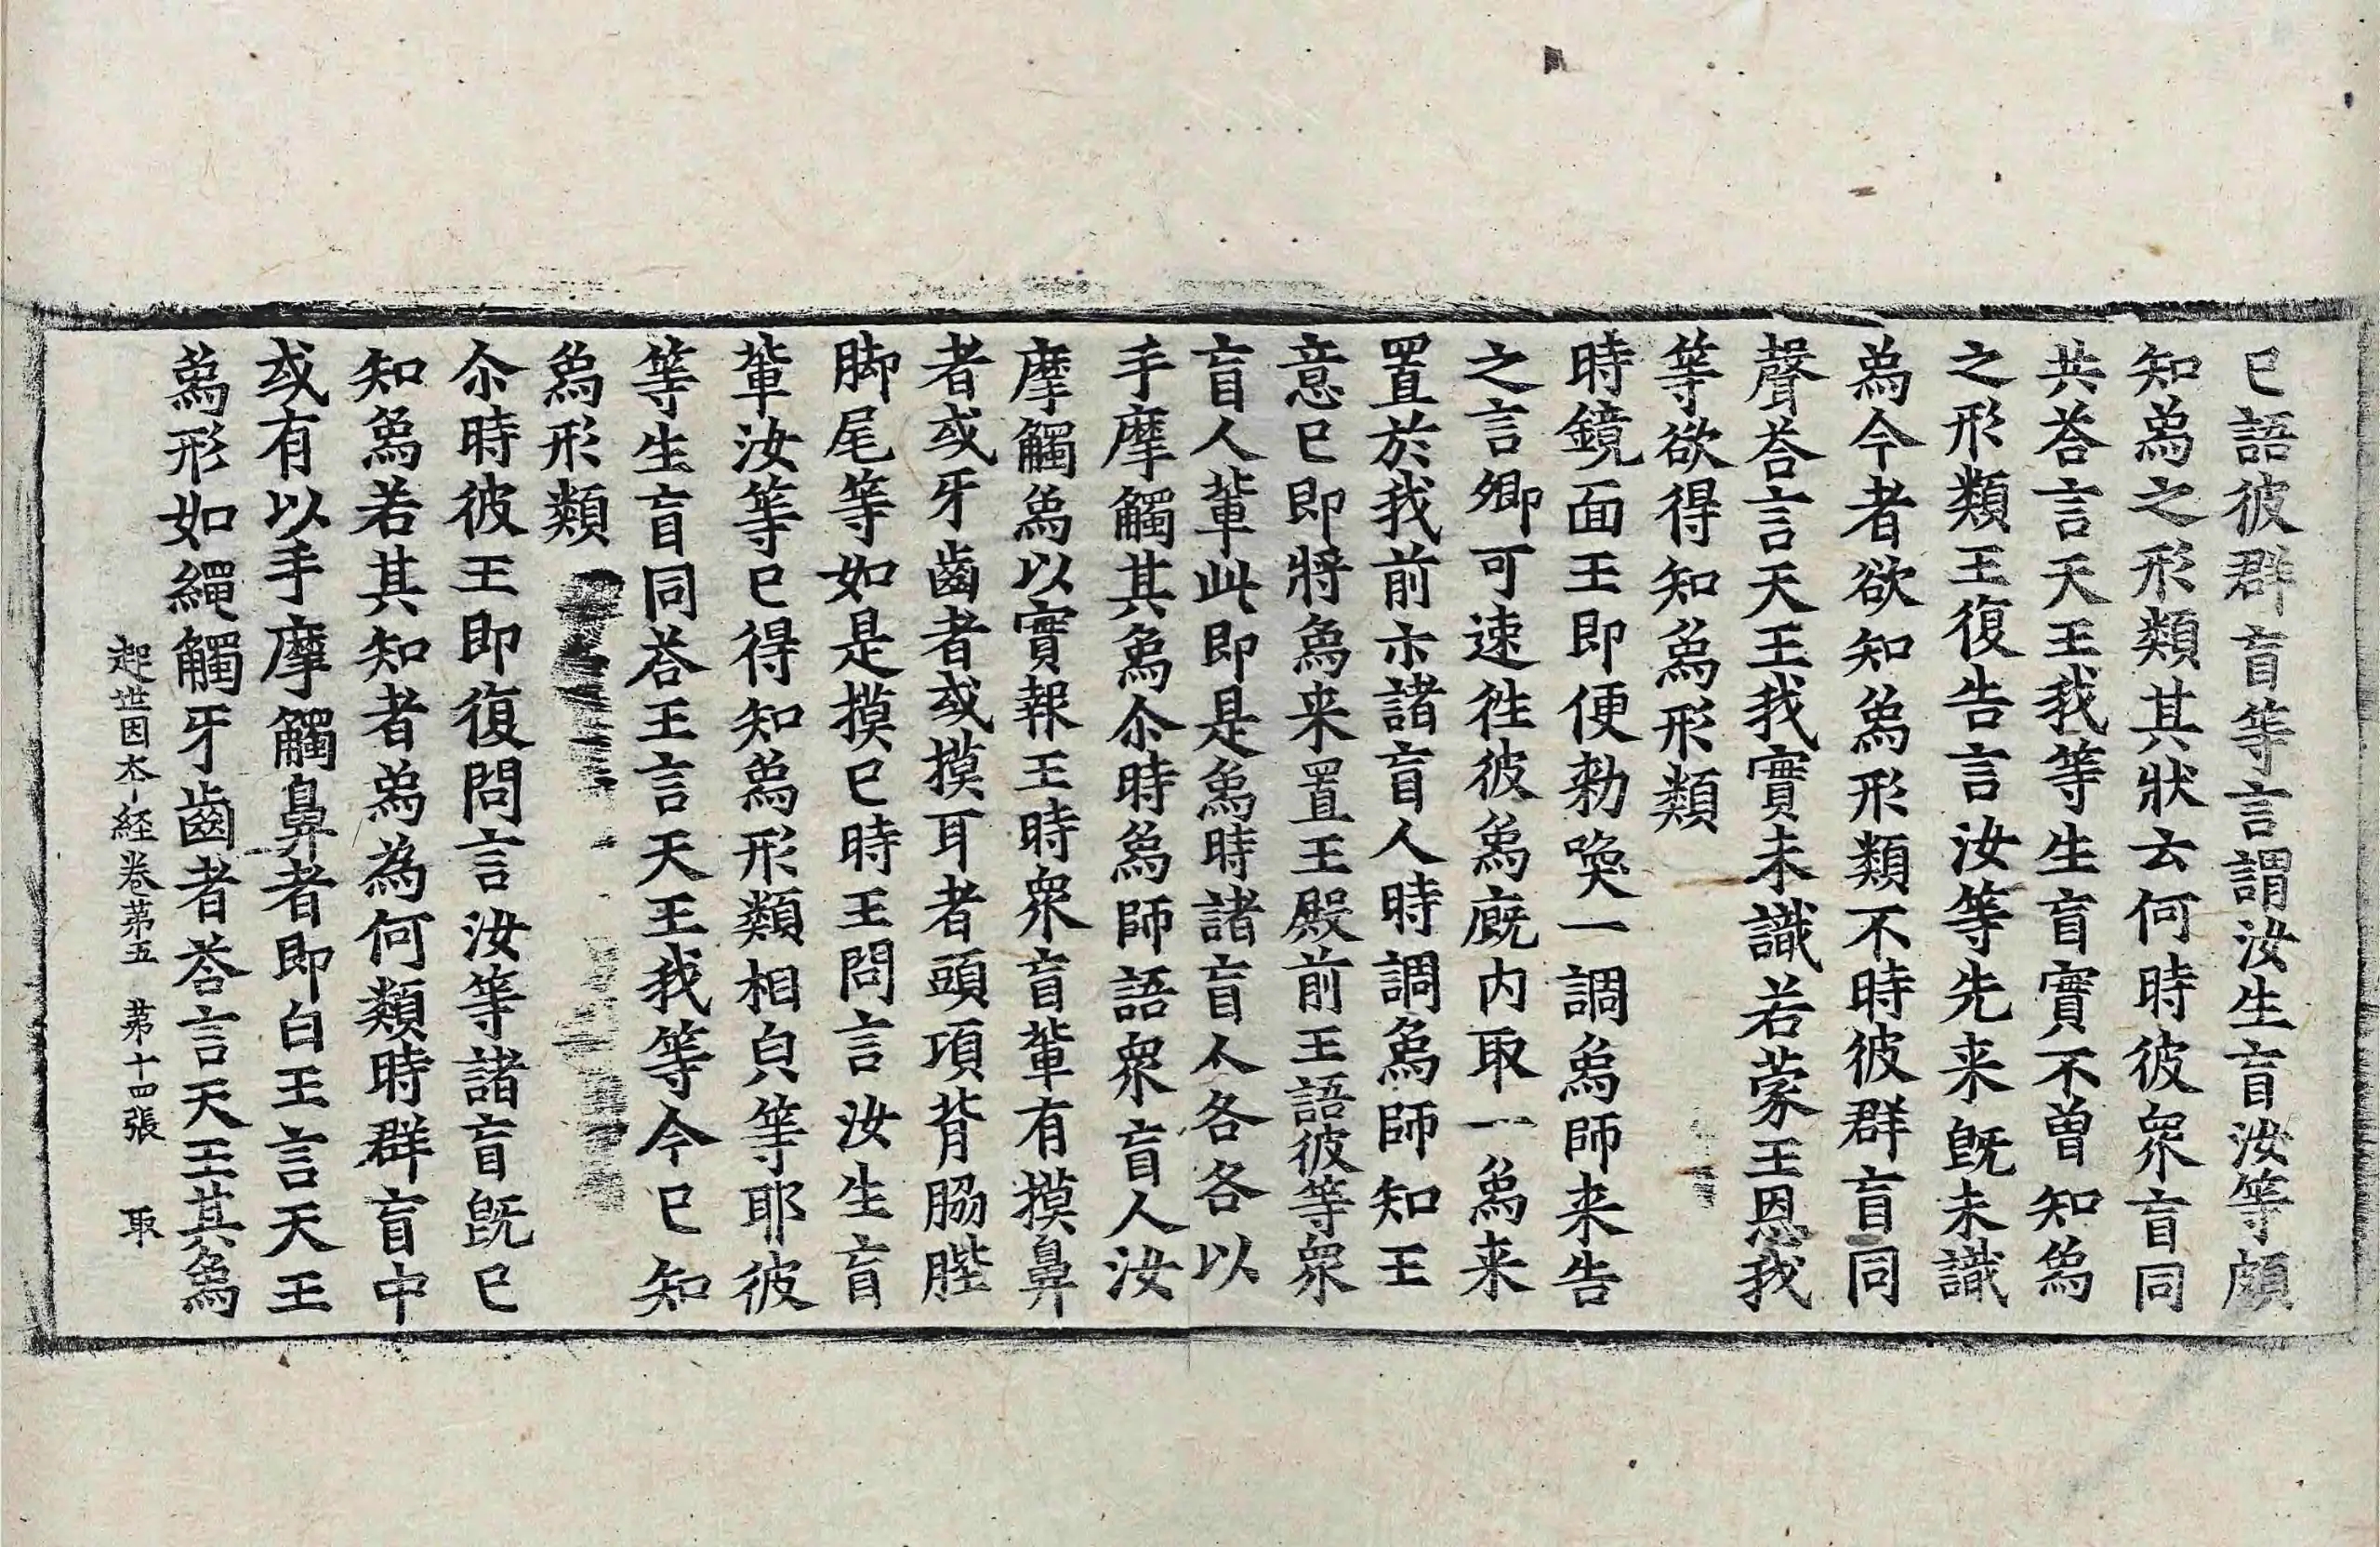 已語彼群盲等言謂汝生盲汝等頗
知為之形類其狀云何時彼衆盲同
共荅言天王我等生盲實不曾知為
之形類王復告言汝等先来既未識
為今者欲知為形類不時彼群盲同
聲荅言天王我實未識若蒙王恩我
等欲得知為形類
時鏡面王即便勑喚一調為師来告
之言卿可速徃彼為廐内取一為来
置於我前示諸盲人時調為師知王
意已即將為来置王殿前王語彼等衆
盲人輩此即是為時諸盲人各各以
手摩觸其為尒時為師語衆盲人汝
摩觸為以實報王時衆盲輩有摸鼻
者或牙齒者或摸耳者頭項背胁䏶
脚尾等如是摸已時王問言汝生盲
輩汝等已得知為形類相皃等耶彼
等生盲同荅王言天王我等今已知
為形類
尒時彼王即復問言汝等諸盲既已
知為若其知者為為何類時群盲中
或有以手摩觸鼻者即白王言天王
為形如繩觸牙齒者荅言天王其為
起世因夲經卷苐五 苐十四張 取